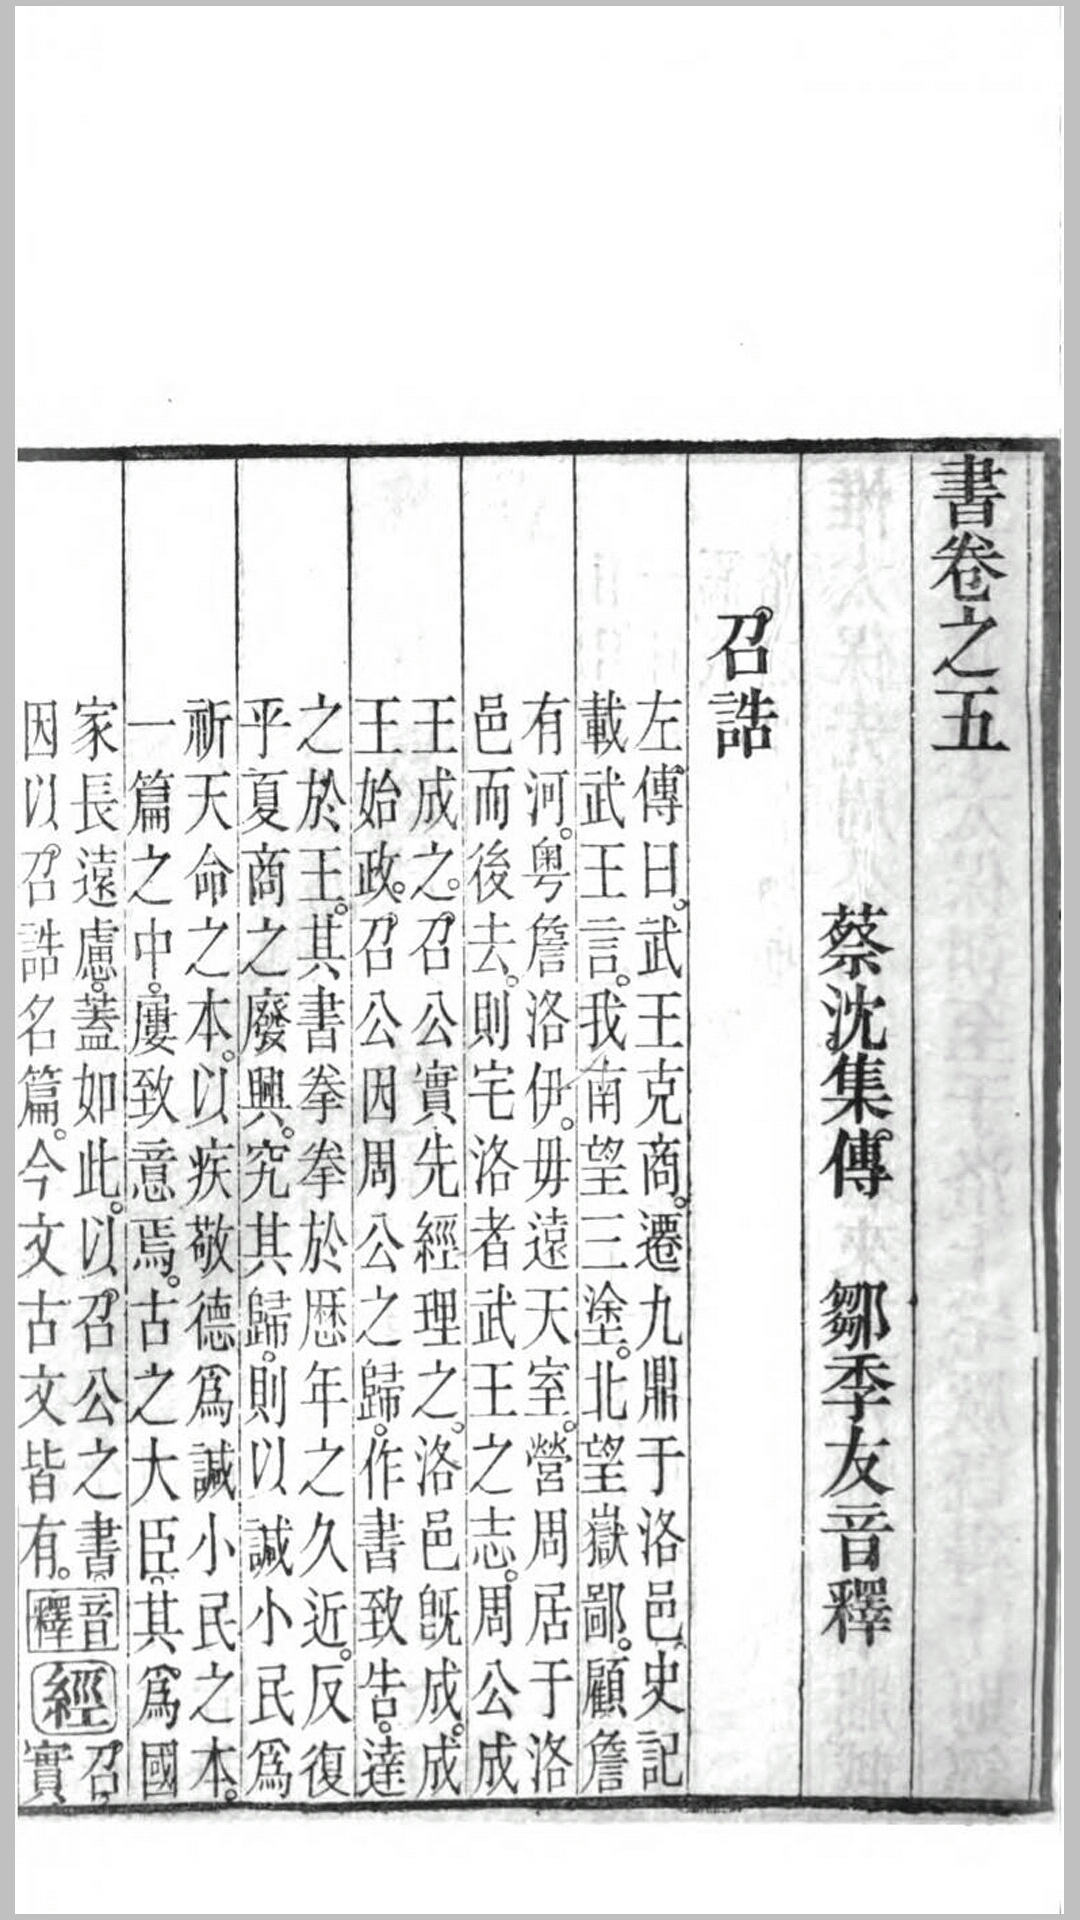 書卷之五
蔡沈集傳　鄒季友音釋
召誥
左傳曰。武王克商。遷九鼎于洛邑。史記
載武王言。我南望三塗。北望嶽鄙。顧詹
有河。粤詹洛伊。毋遠天室。營周居于洛
邑而後去。則宅洛者武王之志。周公成
王成之。召公實先經理之。洛邑旣成。成
王始政。召公因周公之歸。作書致告。達
之於王。其書拳拳於歴年之久近。反復
乎夏商之廢興。究其歸。則以諴小民爲
祈天命之本。以疾敬德爲諴小民之本。
一篇之中。屢致意焉。古之大臣。其爲國
家長遠慮。蓋如此。以召公之書。
因以召誥名篇。今文古文皆有。
音釋
經
召
實